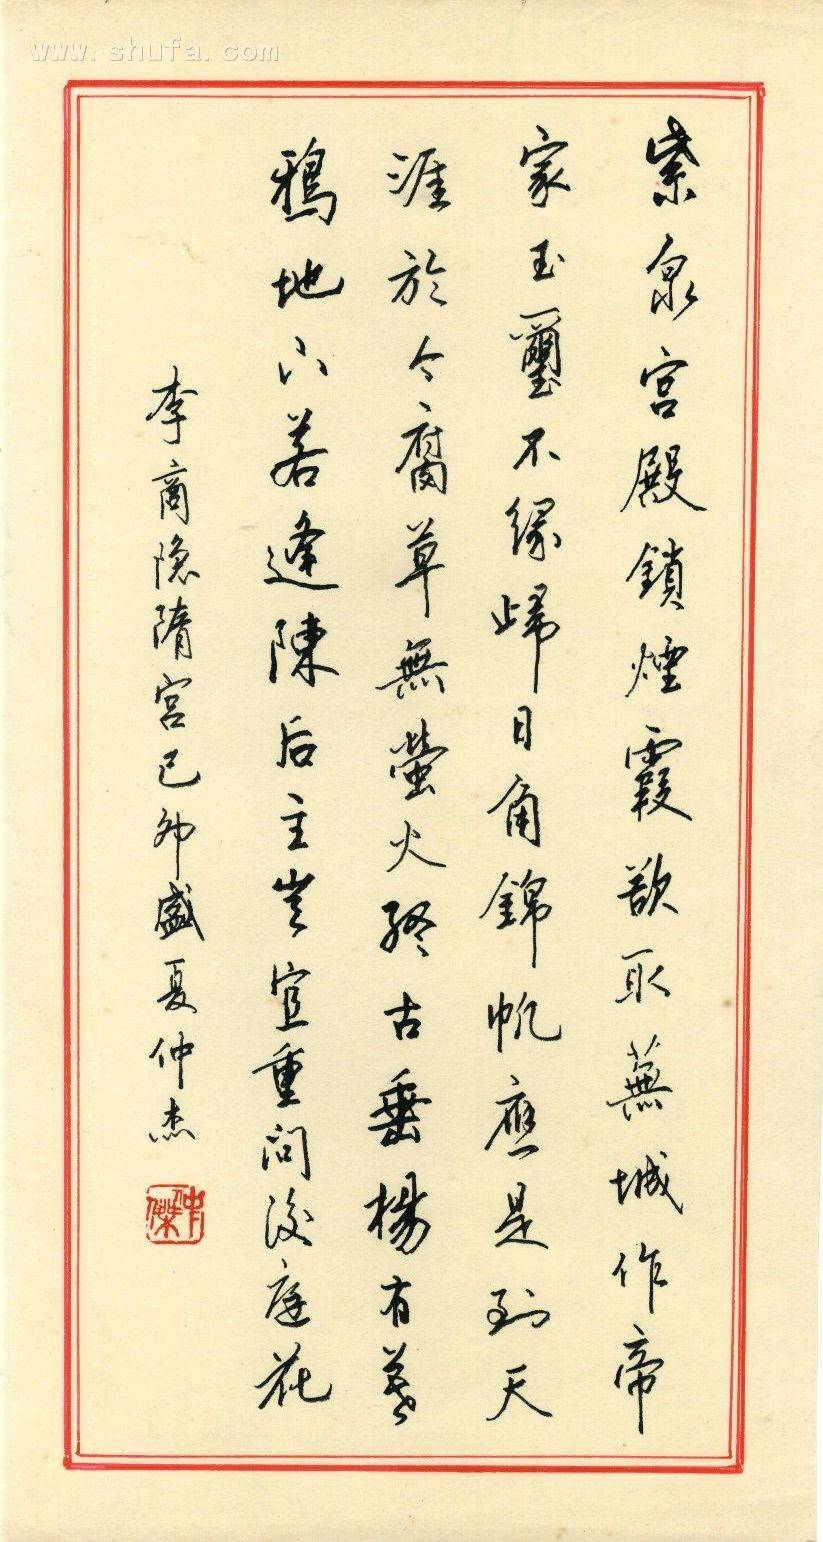 www.shufa.com
紫泉宮殿鎖煙霞欲取蕪城作帝
家玉璽不緣歸日角錦帆應是到天
涯於今腐草無螢火終古垂楊有暮
鴉地下若逢陳后主豈宜重問後庭花
李商隐隋宫己卯盛夏仲杰
仲傑